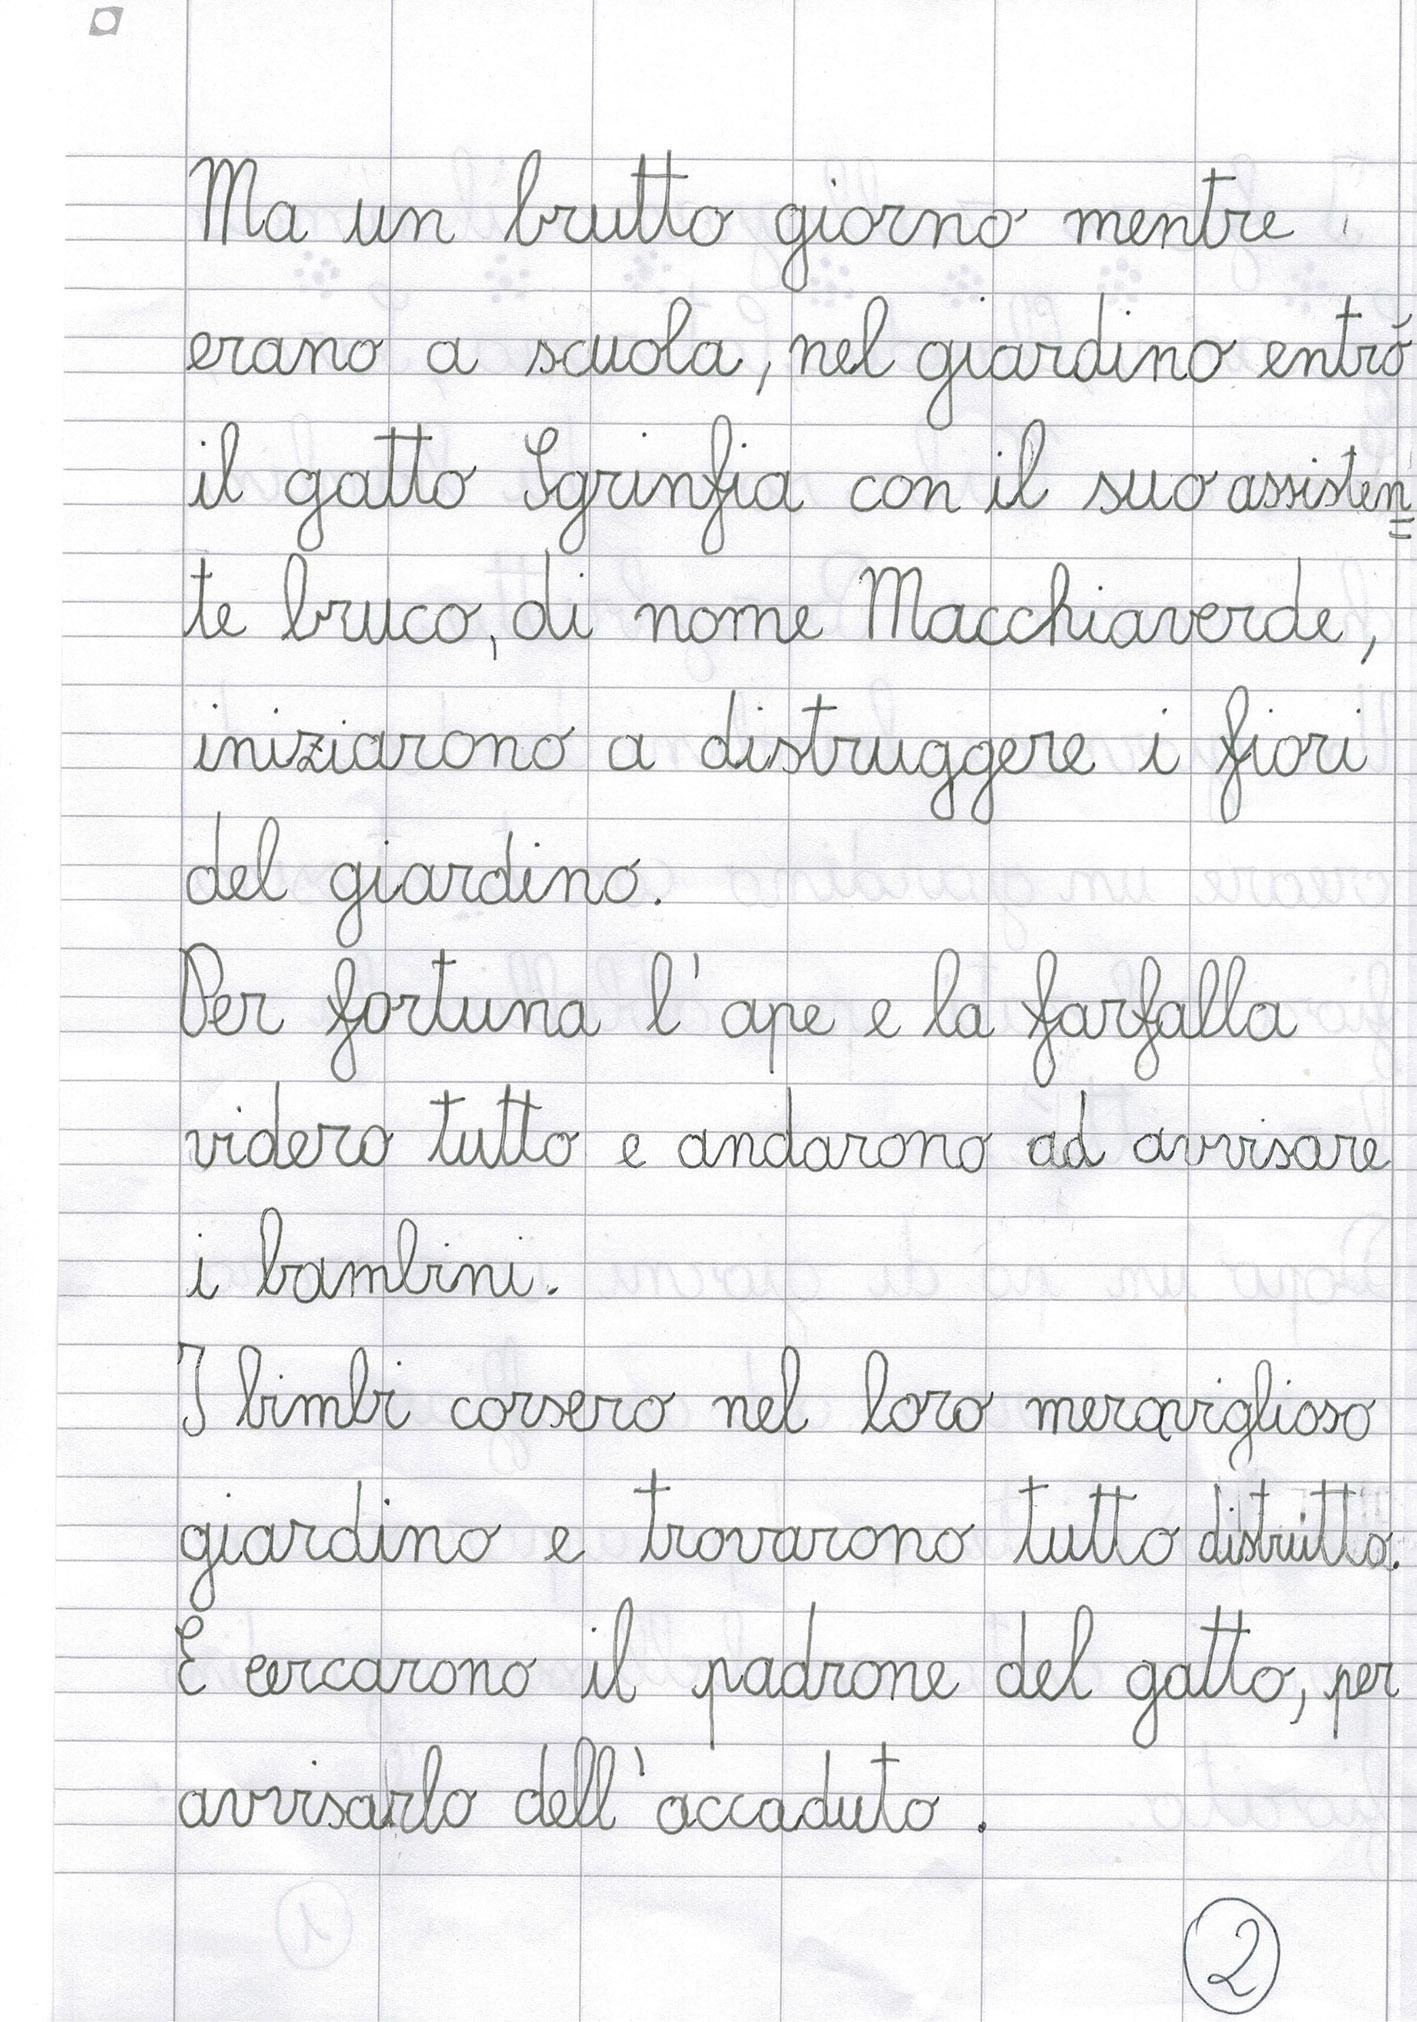 Ma un brutto giorno mentre
erano a scuola, nel giardino entrò
il gatto Sgrinfia con il suo assisten=
te bruco, di nome Macchiaverde,
iniziarono a distruggere i fiori
del giardino.
Per fortuna l'ape e la farfalla
videro tutto e andarono ad avvisare
i bambini.
I bimbi corsero nel loro meraviglioso
giardino e trovarono tutto distrutto.
E cercarono il padrone del gatto, per
avvisarlo dell'accaduto.
2